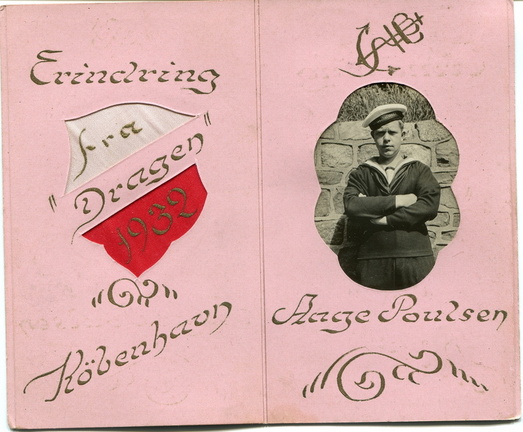 Erindring
fra
"Dragen"
1932
Köbenhavn
Aage Poulsen